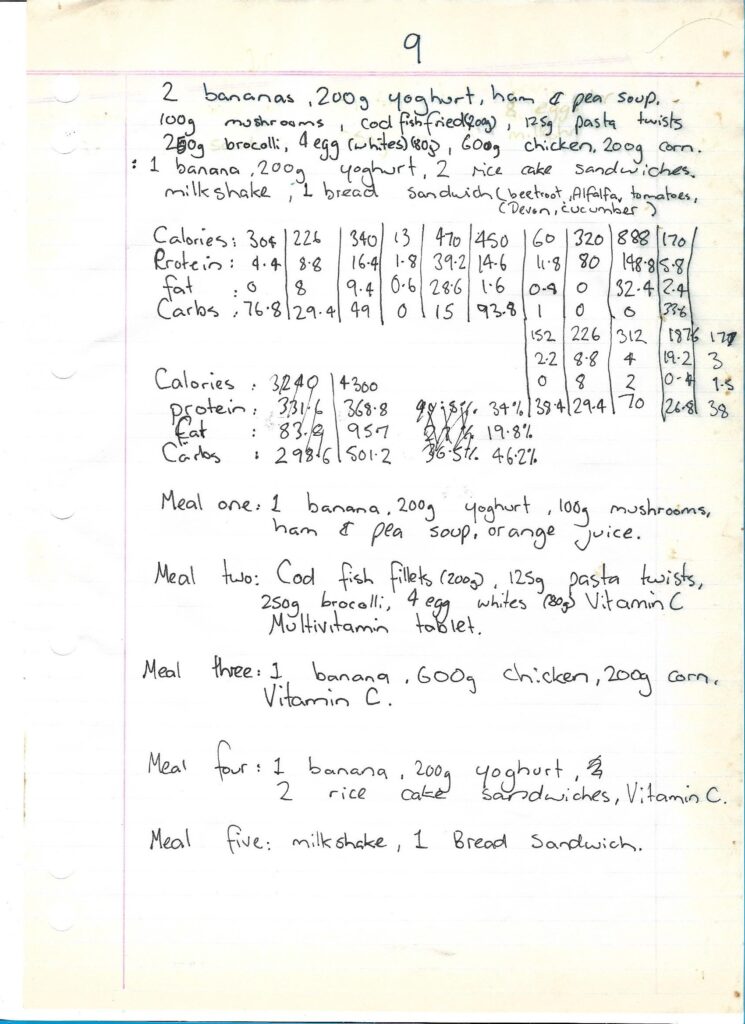 9
2 bananas, 200g yoghurt, ham & pea soup.
100g mushrooms, cod fish fried (200g), 125g pasta twists
250g brocolli, 4 egg (whites) (80g), 600g chicken, 200g corn.
: 1 banana, 200g yoghurt, 2 rice cake sandwiches.
milkshake, 1 bread sandwich (beetroot, Alfalfa, tomatoes,
(Devon, cucumber)
Calories: 304 | 226 | 340 | 13 | 470 | 450 | 60 | 320 | 888 | 170
Protein: 4.4 | 8.8 | 16.4 | 1.8 | 39.2 | 14.6 | 11.8 | 80 | 148.8 | 5.8
fat : 0 | 8 | 9.4 | 0.6 | 28.6 | 1.6 | 0.4 | 0 | 32.4 | 2.4
Carbs : 76.8 | 29.4 | 49 | 0 | 15 | 93.8 | 1 | 0 | 0 | 33.6
152 | 226 | 312 | 1876
2.2 | 8.8 | 4 | 19.2 | 3
0 | 8 | 2 | 0.4 | 1.5
38.4 | 29.4 | 70 | 26.8 | 38
Calories : 3240 | 4300
protein: 331.6 | 368.8 34%
Fat : 83.8 | 957 19.8%
Carbs : 298.6 | 501.2 36.5% 46.2%
Meal one: 1 banana, 200g yoghurt, 100g mushrooms,
ham & pea soup, orange juice.
Meal two: Cod fish fillets (200g), 125g pasta twists,
250g brocolli, 4 egg whites (80g) Vitamin C
Multivitamin tablet.
Meal three: 1 banana, 600g chicken, 200g corn.
Vitamin C.
Meal four: 1 banana, 200g yoghurt,
2 rice cake sandwiches, Vitamin C.
Meal five: milkshake, 1 Bread Sandwich.